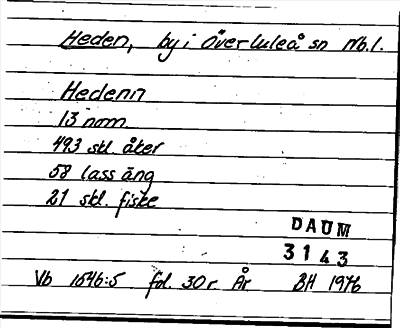 Heden, by i Överluleå sn Nb.l.
Hedenn
13 nom
493 skl. åker
58 lass äng
21 skl. fiske
DAUM
3143
Vb 1646:5 fol. 30r. År BH 1976